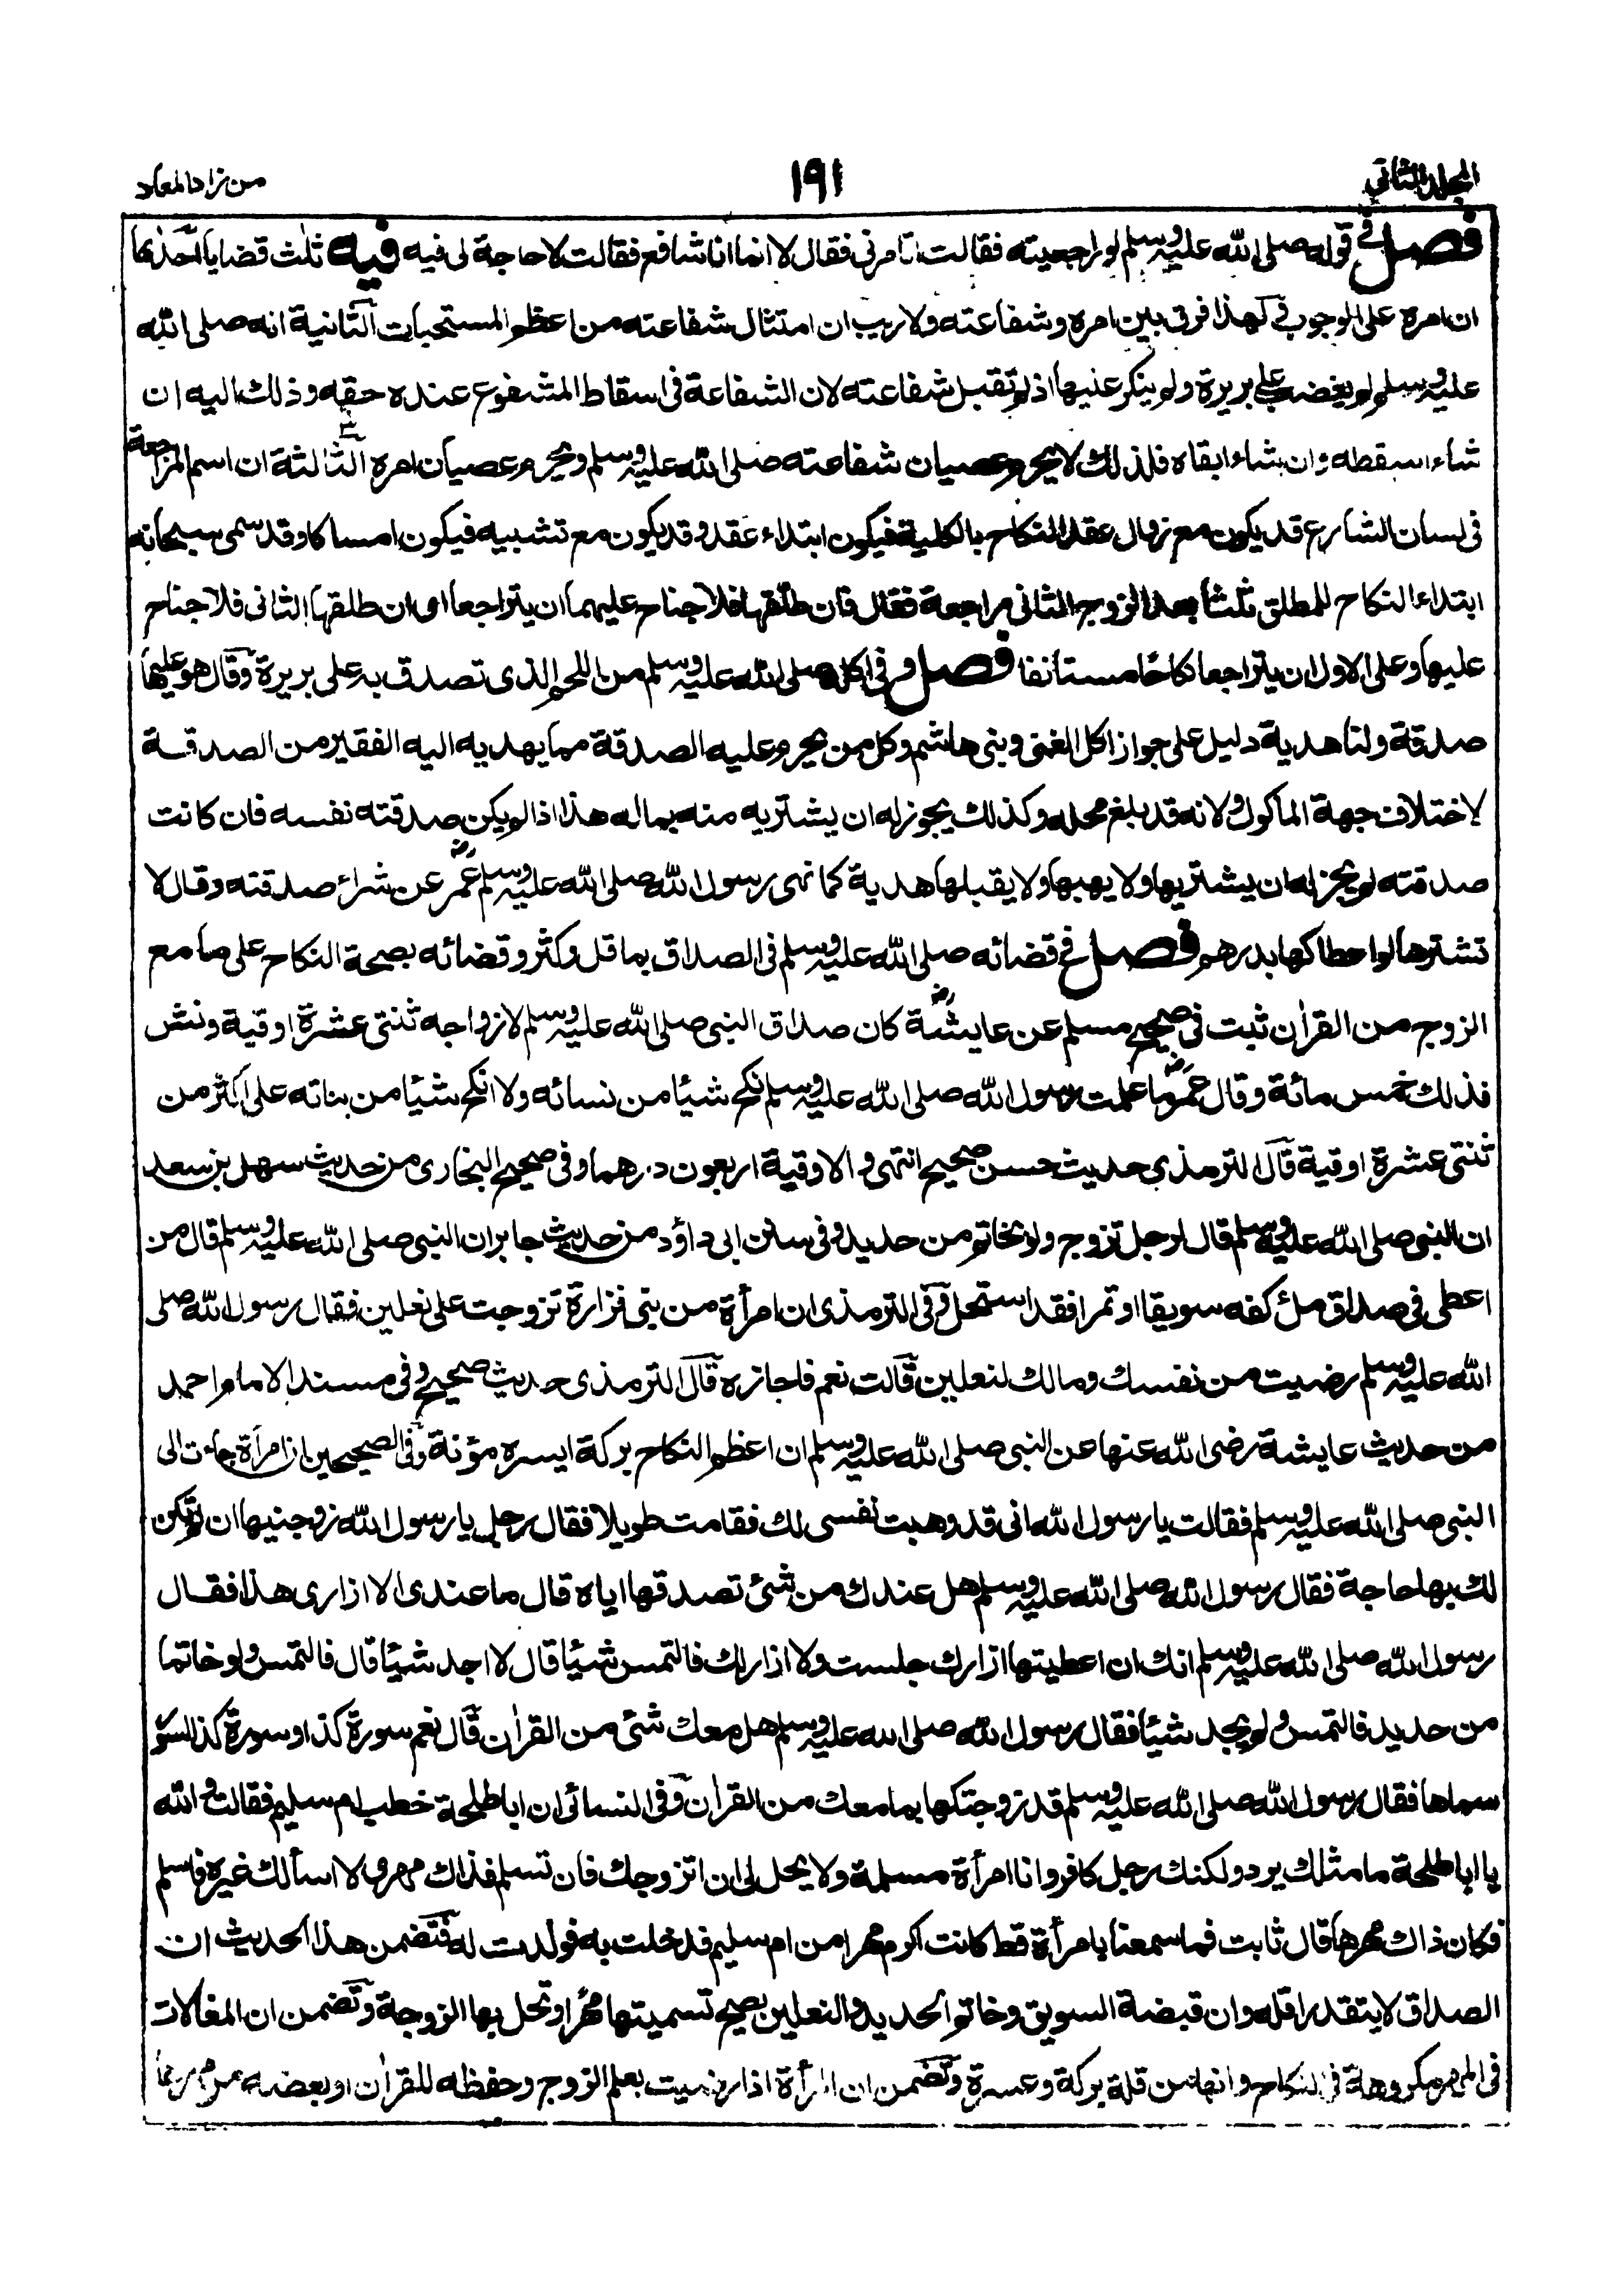 المجلد الثاني
١٩١
من زاد المعاد
فصل في قوله صلى الله عليه وسلم لو راجعيته فقالت اتامرني فقال لا انما انا شافع فقالت لا حاجة لي فيه فيه ثلث قضايا احدها
ان امره على الوجوب ولهذا فرق بين امره وشفاعته ولا ريب ان امتثال شفاعته من اعظم المستحبات الثانية انه صلى الله
عليه وسلم لم يغضب على بريرة ولم ينكر عليها اذ لم تقبل شفاعته لان الشفاعة في اسقاط المشفوع عنده حقه وذلك اليه ان
شاء اسقطه وان شاء ابقاه فلذلك لا يحرم عصيان شفاعته صلى الله عليه وسلم ويحرم عصيان امره الثالثة ان اسم المراجعة
في لسان الشارع قد يكون مع زوال عقد النكاح بالكلية فيكون ابتداء عقد وقد يكون مع تشبيه فيكون امساكا وقد سمى سبحانه
ابتداء النكاح للمطلق ثلثا بعد الزوج الثاني مراجعة فقال فان طلقها فلا جناح عليهما ان يتراجعا اى ان طلقها الثاني فلا جناح
عليها وعلى الاول ان يتراجعا نكاحا مستانفا فصل و في اكله صلى الله عليه وسلم من اللحم الذي تصدق به على بريرة وقال هو عليها
صدقة ولنا هدية دليل على جواز اكل الغنى وبنى هاشم وكل من يحرم عليه الصدقة مما يهديه اليه الفقير من الصدقة
لاختلاف جهة الماكول ولانه قد بلغ محله وكذلك يجوز له ان يشتريه منه بماله هذا اذا لم يكن صدقته نفسه فان كانت
صدقته لم يجز له ان يشتريها ولا يهبها ولا يقبلها هدية كما نهى رسول الله صلى الله عليه وسلم عمر رض عن شراء صدقته وقال لا
تشترها لو احطاكها بدرهم فصل في قضائه صلى الله عليه وسلم في الصداق بما قل وكثر وقضائه بصحة النكاح على ما مع
الزوج من القراٰن ثبت في صحيح مسلم عن عايشة رض كان صداق النبي صلى الله عليه وسلم لازواجه ثنتى عشرة اوقية ونش
فذلك خمس مائة وقال عمر رض ما علمت رسول الله صلى الله عليه وسلم نكح شيئا من نسائه ولا انكح شيئا من بناته على اكثر من
ثنتى عشرة اوقية قال الترمذي حديث حسن صحيح انتهى و الاوقية اربعون درهما وفي صحيح البخاري من حديث سهل بن سعد
ان النبي صلى الله عليه وسلم قال لرجل تزوج ولو بخاتم من حديد وفي سنن ابي داؤد من حديث جابر ان النبي صلى الله عليه وسلم قال من
اعطى في صداق ملئ كفه سويقا او تمرا فقد استحل وفي الترمذي ان امرأة من بني فزارة تزوجت على نعلين فقال رسول الله صلى
الله عليه وسلم رضيت من نفسك ومالك لنعلين قالت نعم فاجازه قال الترمذي حديث صحيح وفي مسند الامام احمد
من حديث عايشة رضي الله عنها عن النبي صلى الله عليه وسلم ان اعظم النكاح بركة ايسره مؤنة وفي الصحيحين ان امرأة جاءت الى
النبي صلى الله عليه وسلم فقالت يا رسول الله اني قد وهبت نفسي لك فقامت طويلا فقال رجل يا رسول الله زوجنيها ان لم تكن
لك بها حاجة فقال رسول الله صلى الله عليه وسلم هل عندك من شئ تصدقها اياه قال ما عندي الا ازاري هذا فقال
رسول الله صلى الله عليه وسلم انك ان اعطيتها ازارك جلست ولا ازار لك فالتمس شيئا قال لا اجد شيئا قال فالتمس ولو خاتما
من حديد فالتمس ولم يجد شيئا فقال رسول الله صلى الله عليه وسلم هل معك شئ من القراٰن قال نعم سورة كذا وسورة كذا لسور
سماها فقال رسول الله صلى الله عليه وسلم قد زوجتكها بما معك من القراٰن وفي النسائى ان ابا طلحة خطب ام سليم فقالت والله
يا ابا طلحة ما مثلك يرد ولكنك رجل كافر وانا امرأة مسلمة ولا يحل لى ان اتزوجك فان تسلم فذاك مهري لا اسألك غيره فاسلم
فكان ذاك مهرها قال ثابت فما سمعنا بامرأة قط كانت اكرم مهرا من ام سليم فدخلت به فولدت له فتضمن هذا الحديث ان
الصداق لا يتقدر اقله وان قبضة السويق وخاتم الحديد والنعلين يصح تسميتها مهرا وتحل بها الزوجة وتضمن ان المغالات
في المهر مكروهة في النكاح وانها من قلة بركة وعسرة وتضمن ان المرأة اذا رضيت بعلم الزوج وحفظه للقراٰن او بعضه من مهرها